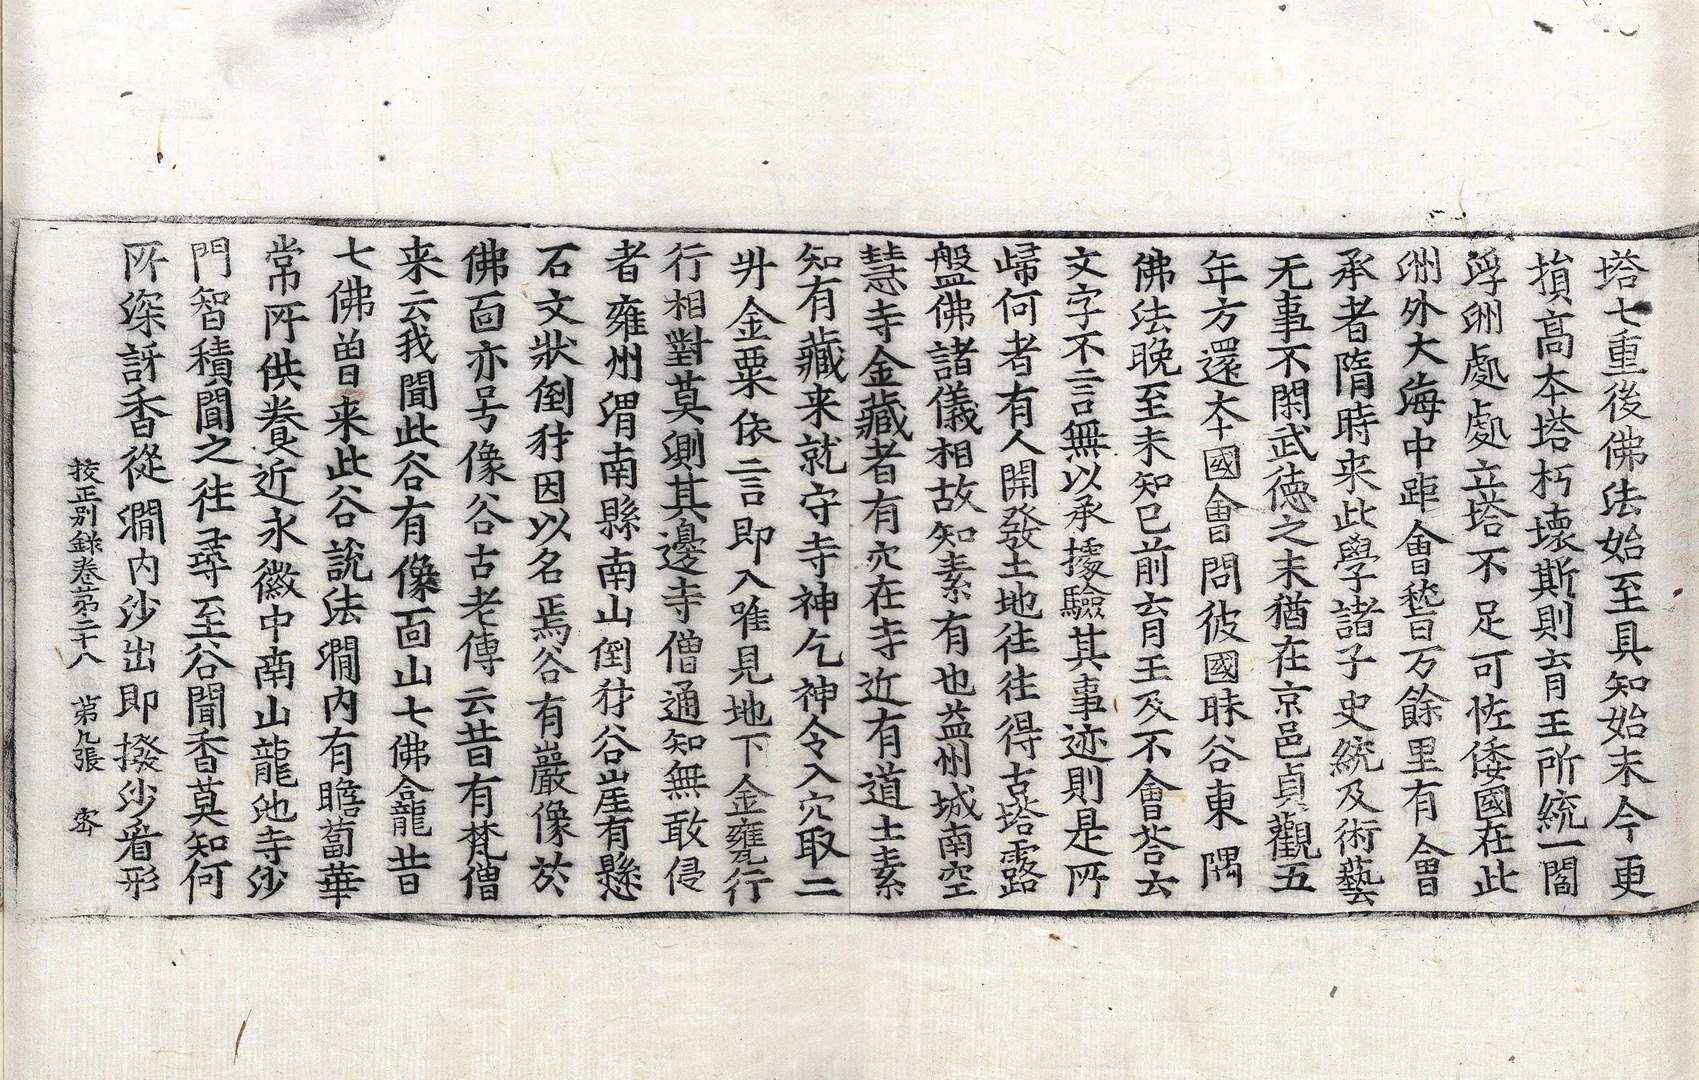 塔七重後佛法始至具知始末今更
損高本塔朽壞斯則育王所統一閻
浮洲處處立塔不足可怪倭國在此
洲外大海中距會稽万餘里有會
承者隋時来此學諸子史統及術藝
无事不閑武德之末猶在京邑貞觀五
年方還本國會問彼國昧谷東隅
佛法晚至未知已前育王及不會荅云
文字不言無以承據驗其事迹則是所
歸何者有人開發土地往往得古塔露
盤佛諸儀相故知素有也益州城南空
慧寺金藏者有穴在寺近有道士素
知有藏来就守寺神乞神令入穴取二
升金粟依言即入唯見地下金甕行
行相對莫測其邊寺僧通知無敢侵
者雍州渭南縣南山倒犲谷崖有懸
石文狀倒犲因以名焉谷有巖像於
佛面亦号像谷古老傳云昔有梵僧
来云我聞此谷有像面山七佛龕昔
七佛曾来此谷說法澗内有瞻蔔華
常所供養近永徽中南山龍池寺沙
門智積聞之往尋至谷聞香莫知何
所深訝香從澗内沙出即撥沙看形
挍正别錄卷苐二十八 苐九張 密